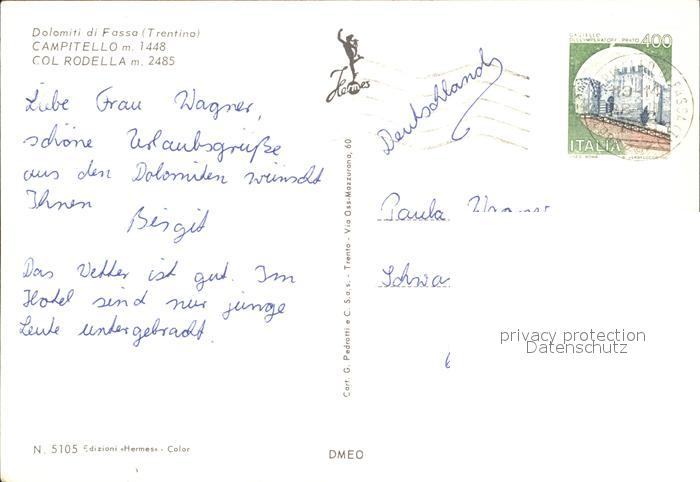 Dolomiti di Fassa (Trentino)
CAMPITELLO m. 1448
COL RODELLA m. 2485
Liebe Frau Wagner,
schöne Urlaubsgrüße
aus den Dolomiten wünscht
Ihnen
Birgit
Das Wetter ist gut. Im
Hotel sind nur junge
Leute untergebracht.
N. 5105 Edizioni «Hermes» - Color
Hermes
Cart. G. Pedrotti e C. S.a.s. - Trento - Via Oss-Mazzurana, 60
DMEO
CASTELLO
DELL'IMPERATORE - PRATO 400
ITALIA
Deutschland
Paula Wagner
Schwa
6
privacy protection
Datenschutz